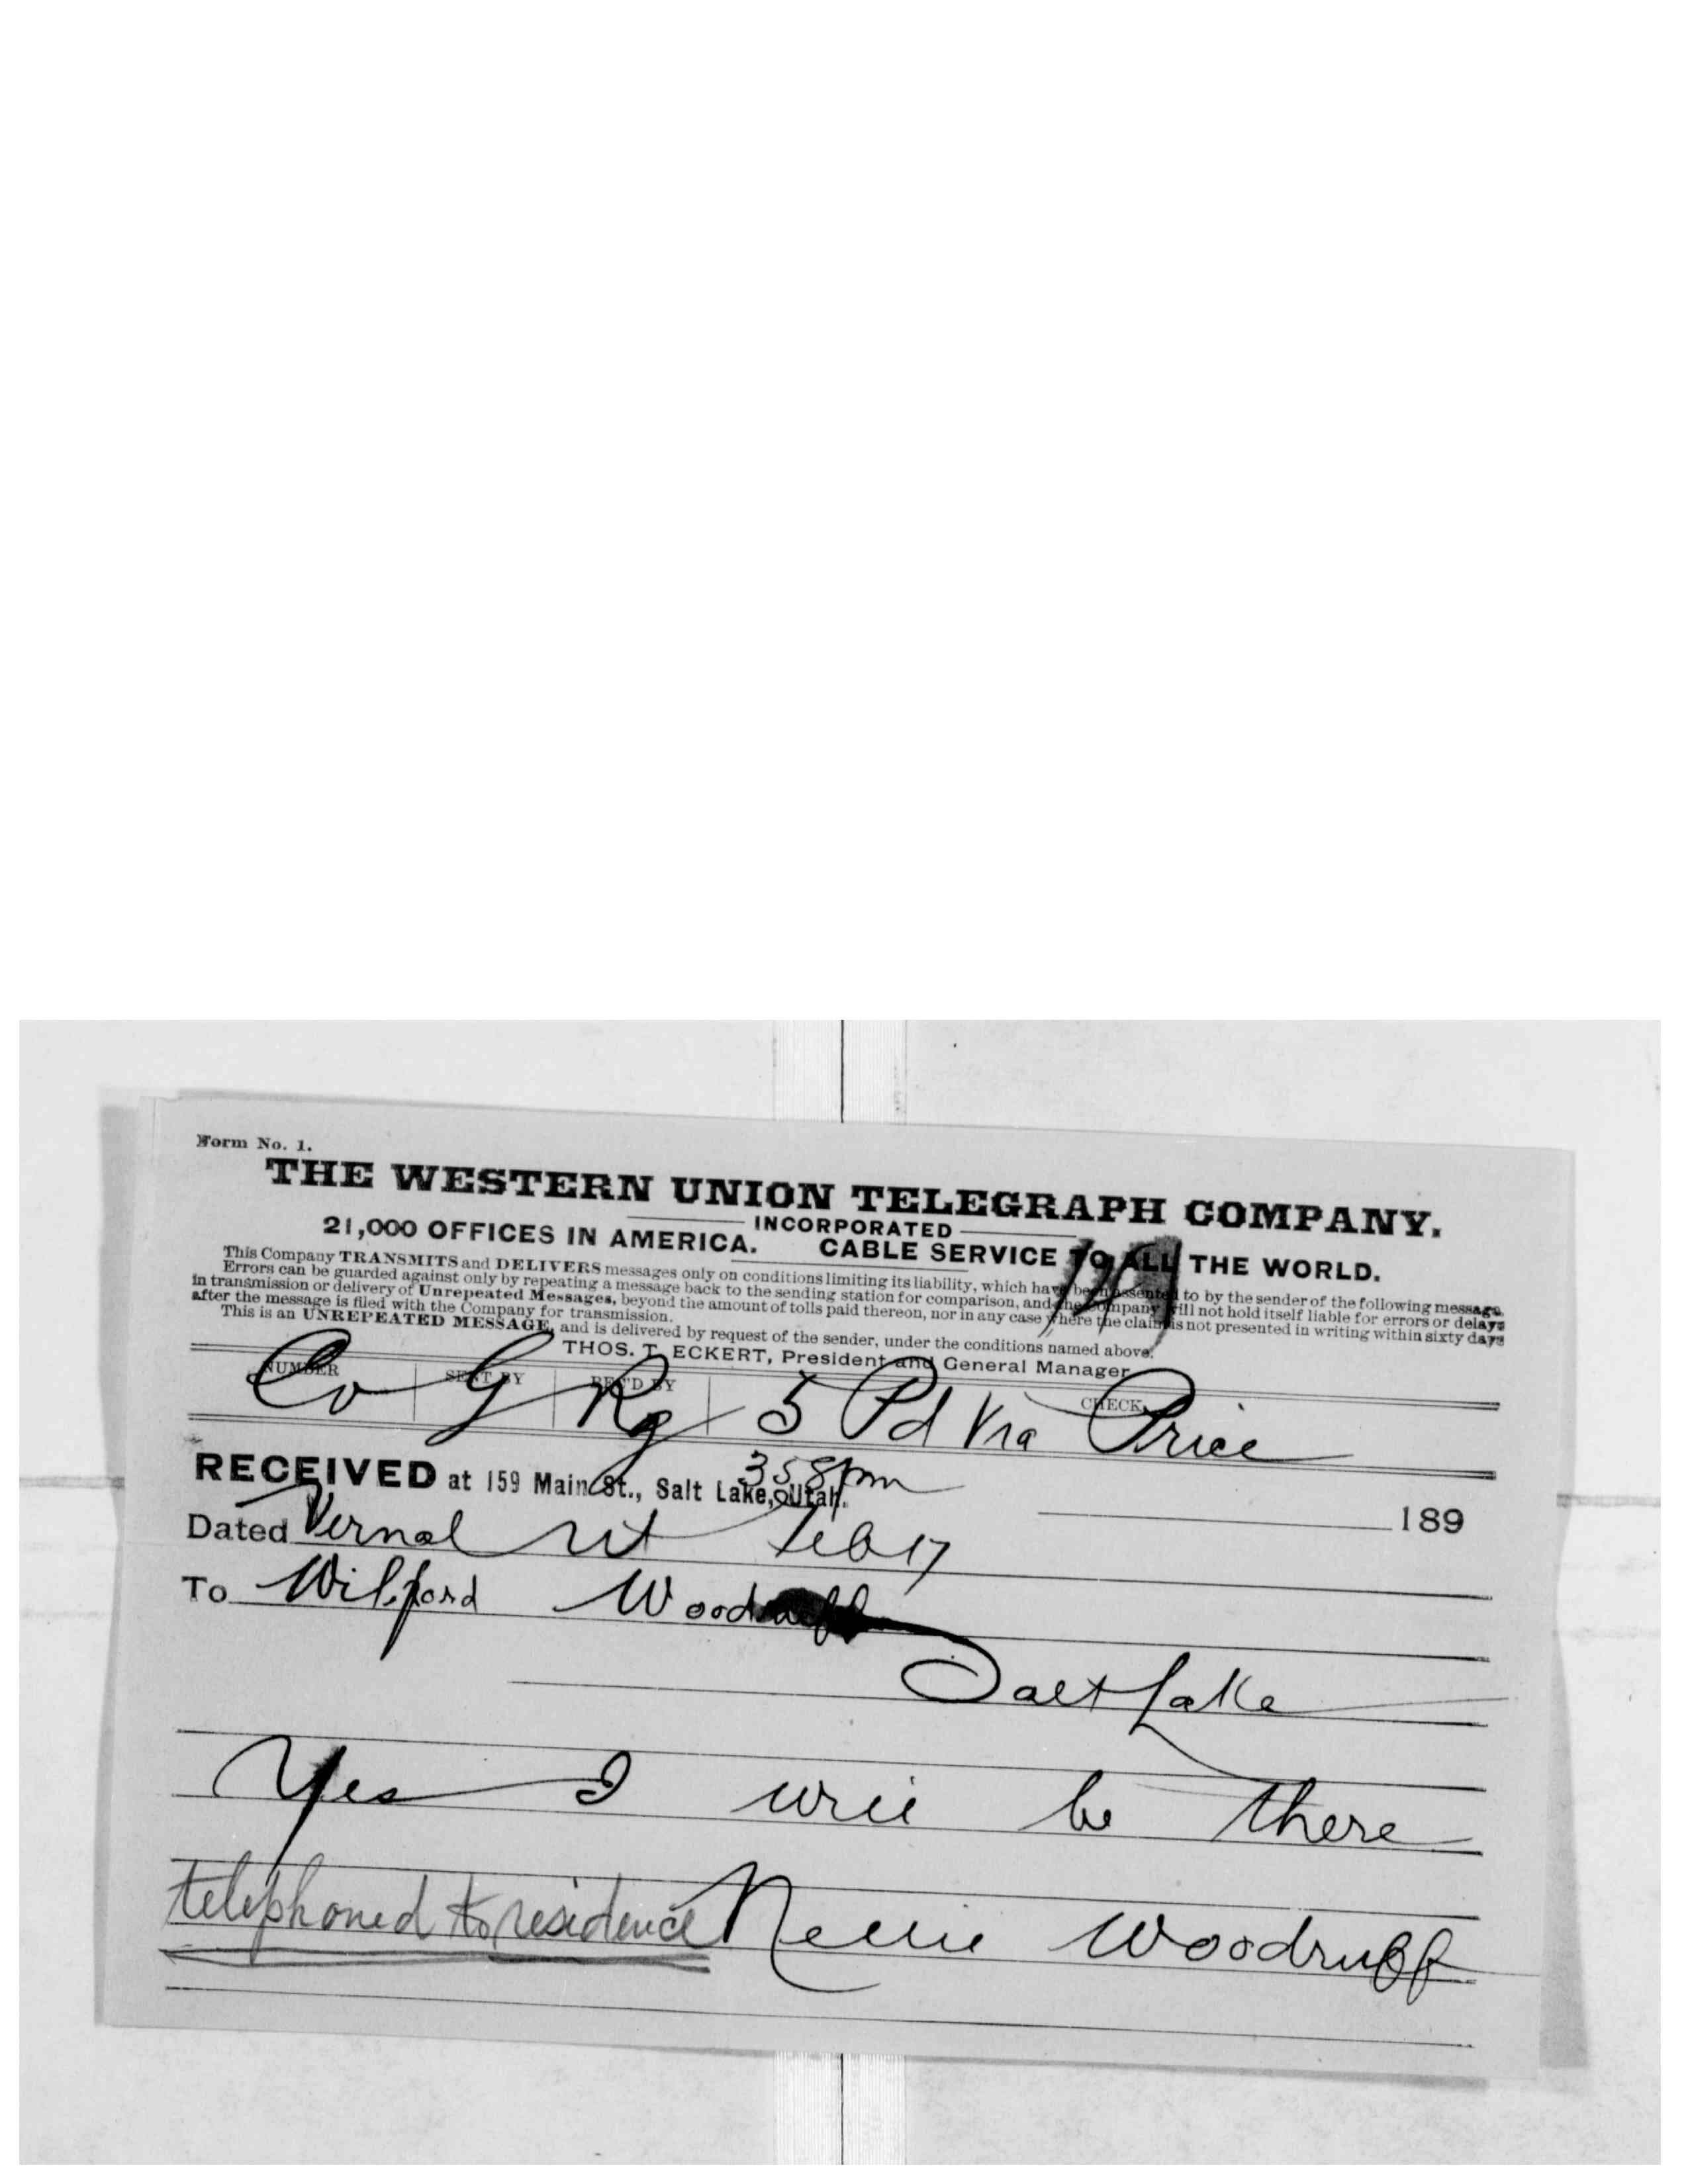 Form No. 1.
THE WESTERN UNION TELEGRAPH COMPANY.
INCORPORATED
21,000 OFFICES IN AMERICA. CABLE SERVICE TO ALL THE WORLD.
This Company TRANSMITS and DELIVERS messages only on conditions limiting its liability, which have been assented to by the sender of the following message.
Errors can be guarded against only by repeating a message back to the sending station for comparison, and the Company will not hold itself liable for errors or delays
in transmission or delivery of Unrepeated Messages, beyond the amount of tolls paid thereon, nor in any case where the claim is not presented in writing within sixty days
after the message is filed with the Company for transmission.
This is an UNREPEATED MESSAGE, and is delivered by request of the sender, under the conditions named above.
THOS. T. ECKERT, President and General Manager
NUMBER SENT BY REC'D BY CHECK
Co G Rg 5 Pd Via Price
RECEIVED at 159 Main St., Salt Lake, Utah. 358pm 189
Dated Vernal Ut Feb 17
To Wilford Woodruff
Salt Lake
Yes I will be there
telephoned to residence Nellie Woodruff